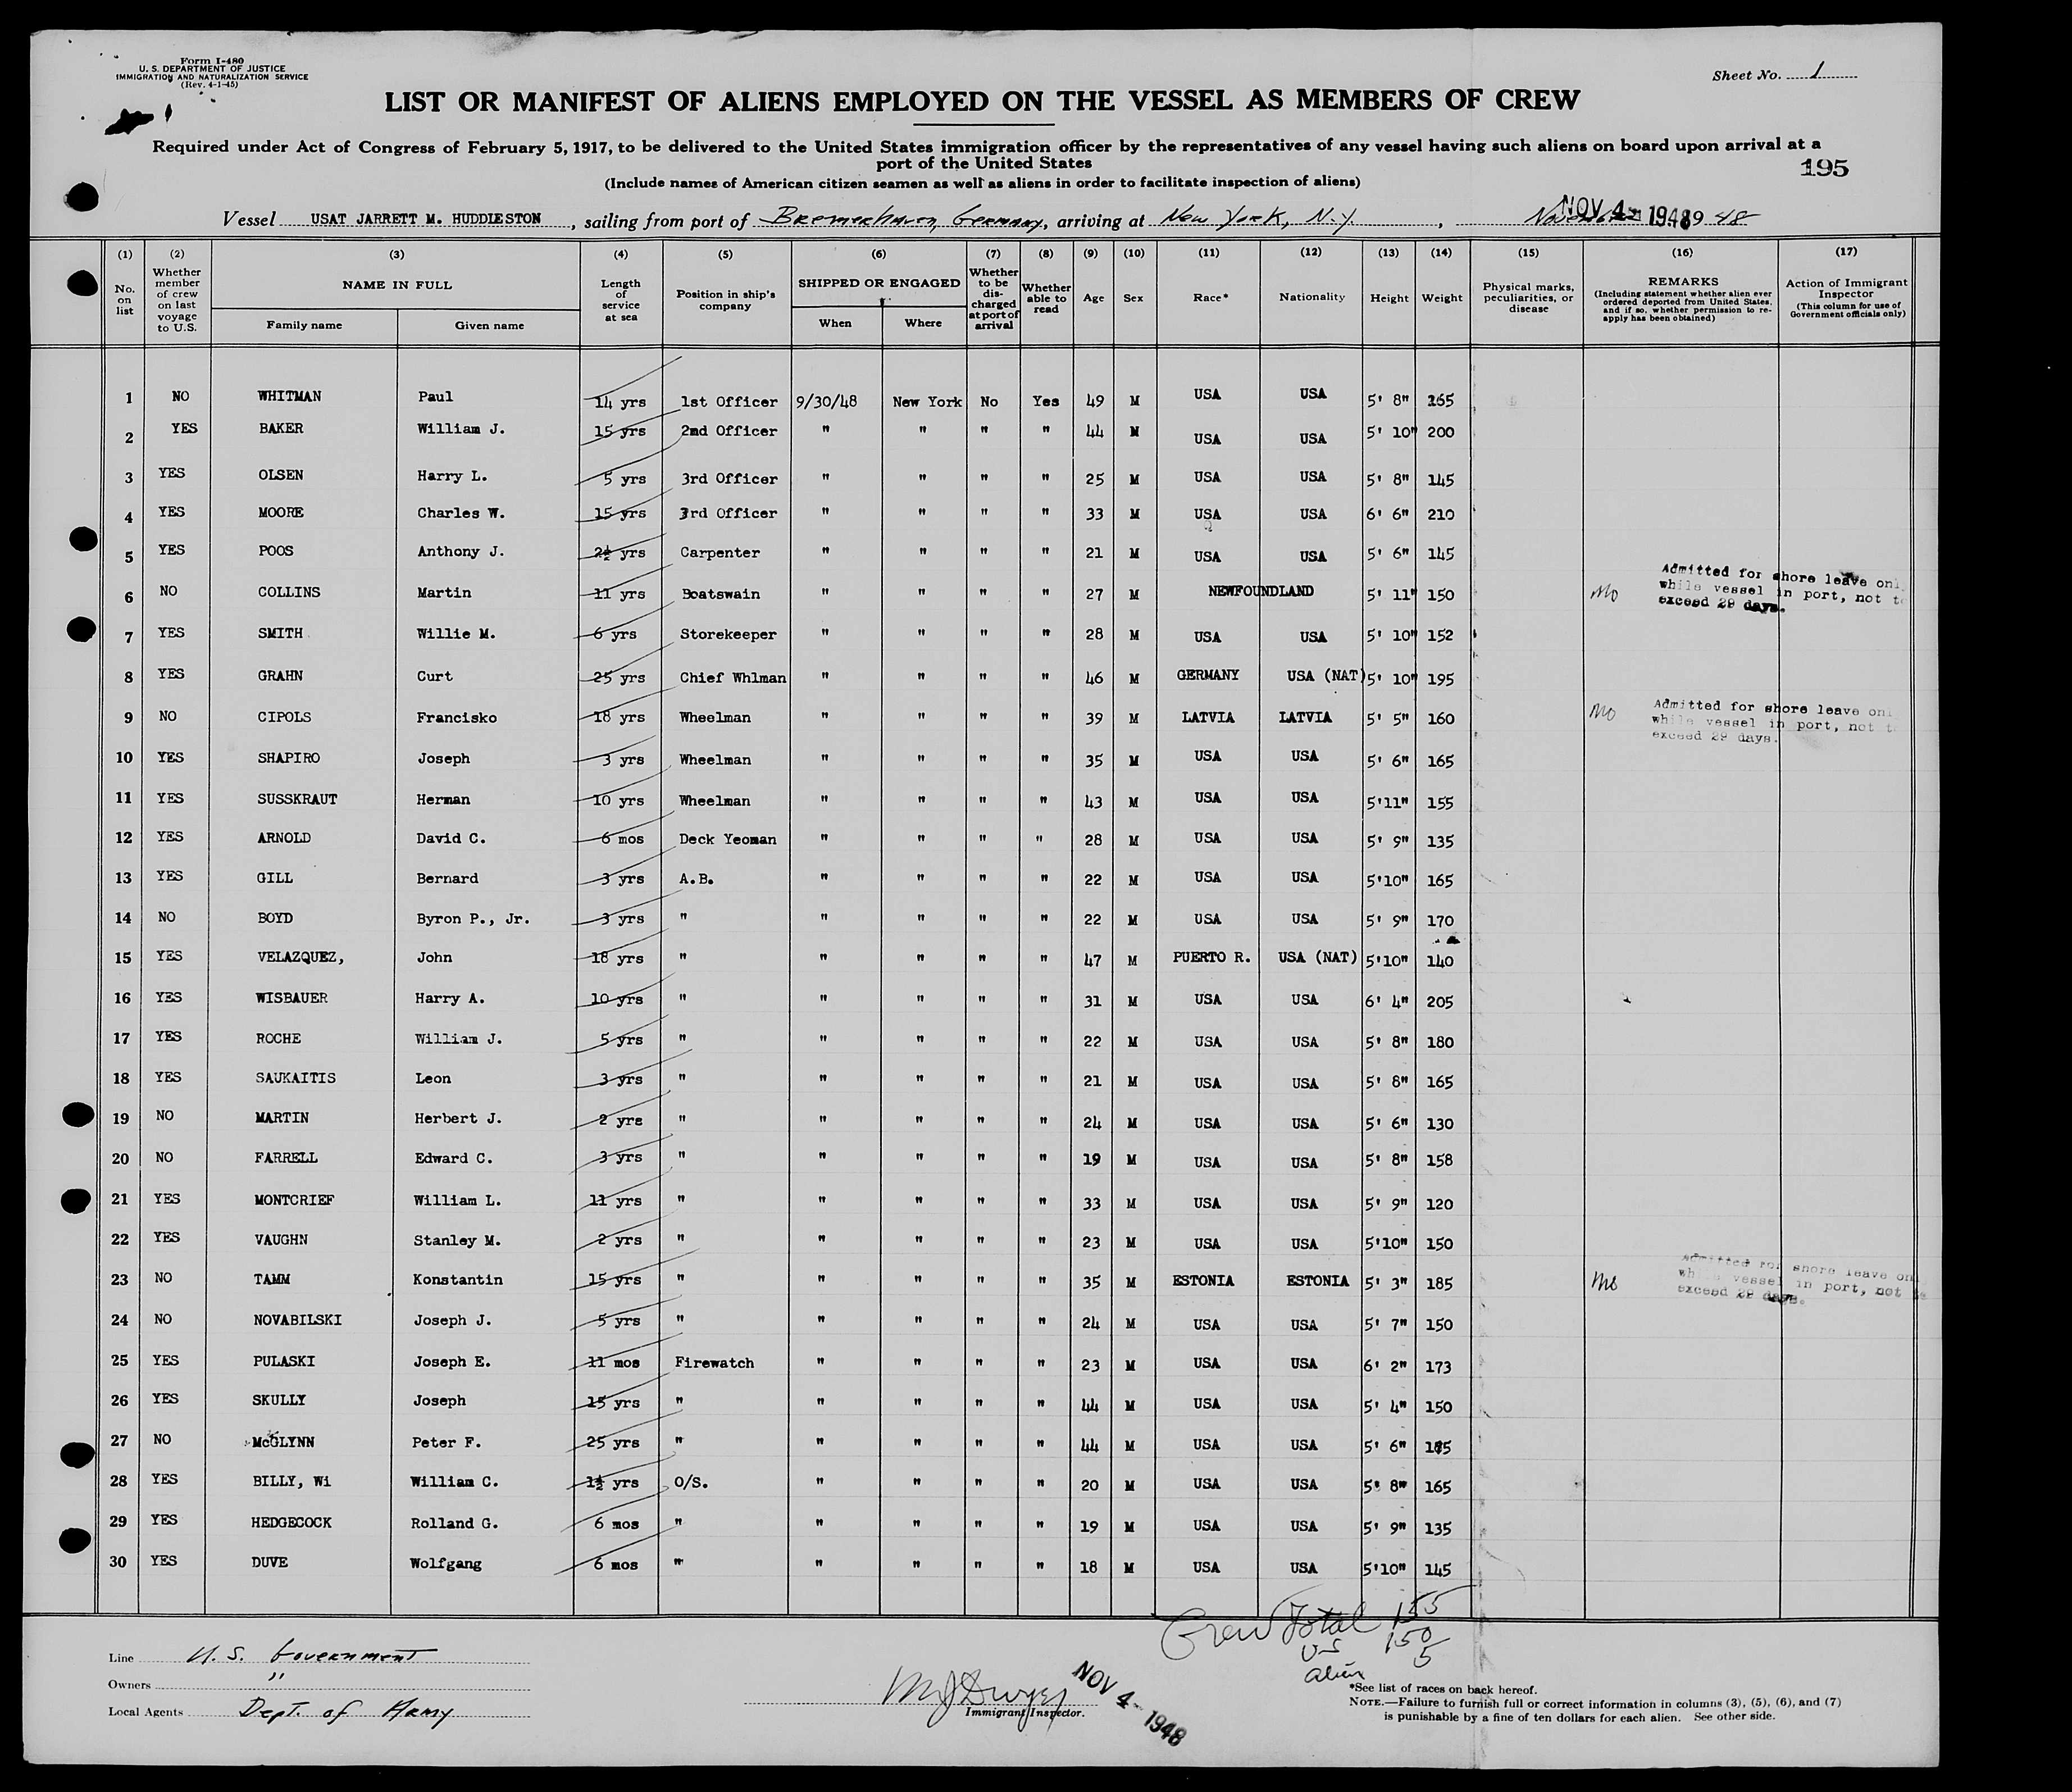 Form I-480
U. S. DEPARTMENT OF JUSTICE
IMMIGRATION AND NATURALIZATION SERVICE
(Rev. 4-1-45)
Sheet No. 1
LIST OR MANIFEST OF ALIENS EMPLOYED ON THE VESSEL AS MEMBERS OF CREW
Required under Act of Congress of February 5, 1917, to be delivered to the United States immigration officer by the representatives of any vessel having such aliens on board upon arrival at a
port of the United States
195
(Include names of American citizen seamen as well as aliens in order to facilitate inspection of aliens)
Vessel USAT JARRETT M. HUDDLESTON, sailing from port of Bremerhaven, Germany, arriving at New York, N.Y., NOV 4 - 1948 1948
(1) No. on list
(2) Whether member of crew on last voyage to U.S.
(3) NAME IN FULL Family name Given name
(4) Length of service at sea
(5) Position in ship's company
(6) SHIPPED OR ENGAGED When Where
(7) Whether to be discharged at port of arrival
(8) Whether able to read
(9) Age
(10) Sex
(11) Race*
(12) Nationality
(13) Height
(14) Weight
(15) Physical marks, peculiarities, or disease
(16) REMARKS (Including statement whether alien ever ordered deported from United States, and if so, whether permission to re-apply has been obtained)
(17) Action of Immigrant Inspector (This column for use of Government officials only)
1 NO WHITMAN Paul 14 yrs 1st Officer 9/30/48 New York No Yes 49 M USA USA 5' 8" 165
2 YES BAKER William J. 15 yrs 2nd Officer " " " " 44 M USA USA 5' 10" 200
3 YES OLSEN Harry L. 5 yrs 3rd Officer " " " " 25 M USA USA 5' 8" 145
4 YES MOORE Charles W. 15 yrs 3rd Officer " " " " 33 M USA USA 6' 6" 210
5 YES POOS Anthony J. 2½ yrs Carpenter " " " " 21 M USA USA 5' 6" 145
6 NO COLLINS Martin 11 yrs Boatswain " " " " 27 M NEWFOUNDLAND 5' 11" 150 Admitted for shore leave onl while vessel in port, not to exceed 29 days.
7 YES SMITH Willie M. 6 yrs Storekeeper " " " " 28 M USA USA 5' 10" 152
8 YES GRAHN Curt 25 yrs Chief Whlman " " " " 46 M GERMANY USA (NAT) 5' 10" 195
9 NO CIPOLS Francisko 18 yrs Wheelman " " " " 39 M LATVIA LATVIA 5' 5" 160 Admitted for shore leave onl while vessel in port, not t exceed 29 days.
10 YES SHAPIRO Joseph 3 yrs Wheelman " " " " 35 M USA USA 5' 6" 165
11 YES SUSSKRAUT Herman 10 yrs Wheelman " " " " 43 M USA USA 5'11" 155
12 YES ARNOLD David C. 6 mos Deck Yeoman " " " " 28 M USA USA 5' 9" 135
13 YES GILL Bernard 3 yrs A.B. " " " " 22 M USA USA 5'10" 165
14 NO BOYD Byron P., Jr. 3 yrs " " " " " 22 M USA USA 5' 9" 170
15 YES VELAZQUEZ, John 18 yrs " " " " " 47 M PUERTO R. USA (NAT) 5'10" 140
16 YES WISBAUER Harry A. 10 yrs " " " " " 31 M USA USA 6' 4" 205
17 YES ROCHE William J. 5 yrs " " " " " 22 M USA USA 5' 8" 180
18 YES SAUKAITIS Leon 3 yrs " " " " " 21 M USA USA 5' 8" 165
19 NO MARTIN Herbert J. 2 yrs " " " " " 24 M USA USA 5' 6" 130
20 NO FARRELL Edward C. 3 yrs " " " " " 19 M USA USA 5' 8" 158
21 YES MONTCRIEF William L. 11 yrs " " " " " 33 M USA USA 5' 9" 120
22 YES VAUGHN Stanley M. 2 yrs " " " " " 23 M USA USA 5'10" 150
23 NO TAMM Konstantin 15 yrs " " " " " 35 M ESTONIA ESTONIA 5' 3" 185 Admitted for shore leave onl while vessel in port, not to exceed 29 days.
24 NO NOVABILSKI Joseph J. 5 yrs " " " " " 24 M USA USA 5' 7" 150
25 YES PULASKI Joseph E. 11 mos Firewatch " " " " 23 M USA USA 6' 2" 173
26 YES SKULLY Joseph 15 yrs " " " " " 44 M USA USA 5' 4" 150
27 NO McGLYNN Peter F. 25 yrs " " " " " 44 M USA USA 5' 6"
28 YES BILLY, Wi William C. 1½ yrs O/S. " " " " 20 M USA USA 5' 8" 165
29 YES HEDGECOCK Rolland G. 6 mos " " " " " 19 M USA USA 5' 9" 135
30 YES DUVE Wolfgang 6 mos " " " " " 18 M USA USA 5'10" 145
Crew Total 155
US 150
alien 5
Line U. S. Government
Owners "
Local Agents Dept. of Army
NOV 4 - 1948
Immigrant Inspector.
*See list of races on back hereof.
NOTE.—Failure to furnish full or correct information in columns (3), (5), (6), and (7)
is punishable by a fine of ten dollars for each alien. See other side.